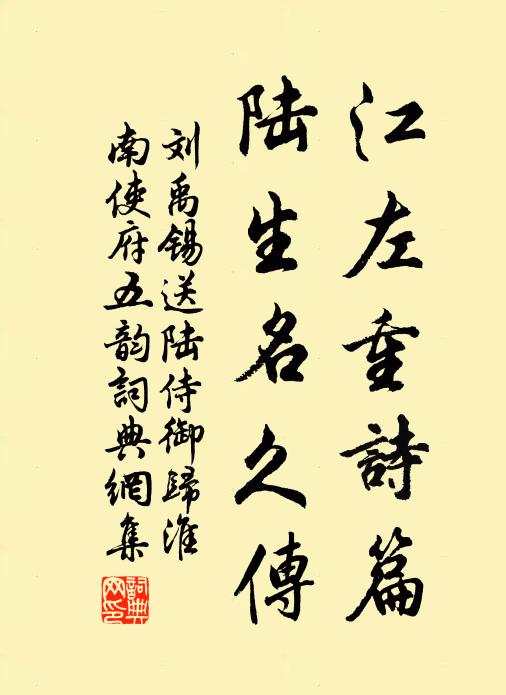 江左重詩篇
陆生名久傳
刘禹锡送陆侍御歸淮
南使府五韵詞典網集
詞典网印